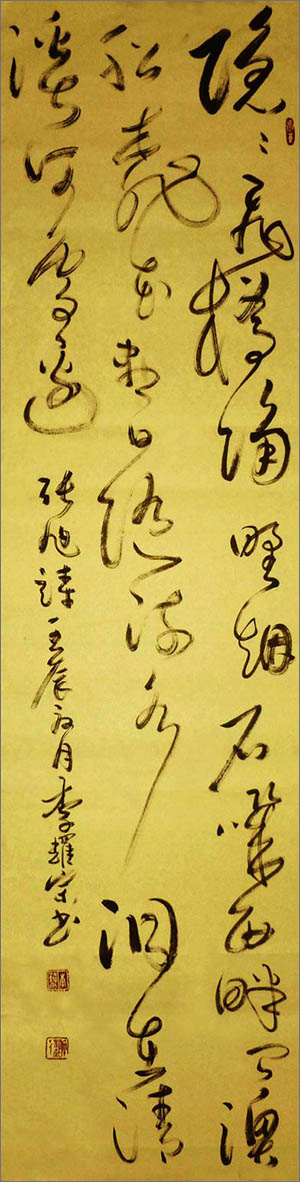 隱〻飛橋隔野烟石磯西畔問漁
船桃花盡日隨流水洞在清
溪何處邊
張旭詩 壬辰 月李耀 书